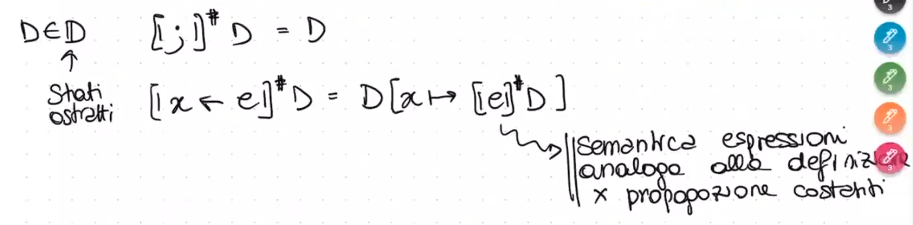 D∈𝔻 ⟦;⟧# D = D
↑
Stati
astratti
⟦x ← e⟧# D = D[x ↦ ⟦e⟧# D]
Semantica espressioni
analoga alla definizione
x propagazione costanti
3
3
3
3
3